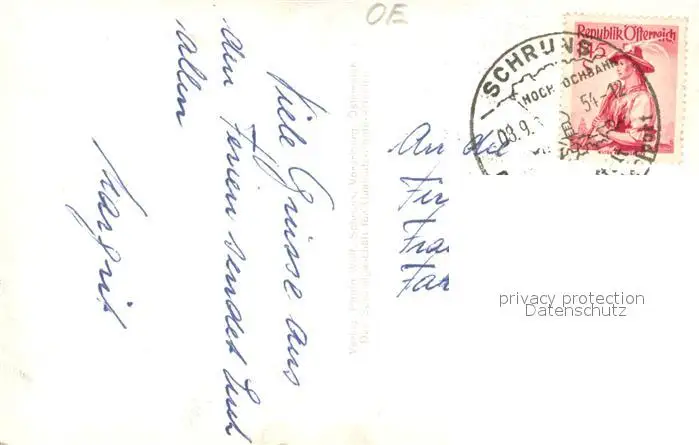 OE
Republik Österreich
SCHRUNS
HOCHJOCHBAHN
54-12
03.9.
Viele Grüsse aus
den Ferien sendet Euch
allen
Margrit
An die
Fir
Fra
Far
privacy protection
Datenschutz